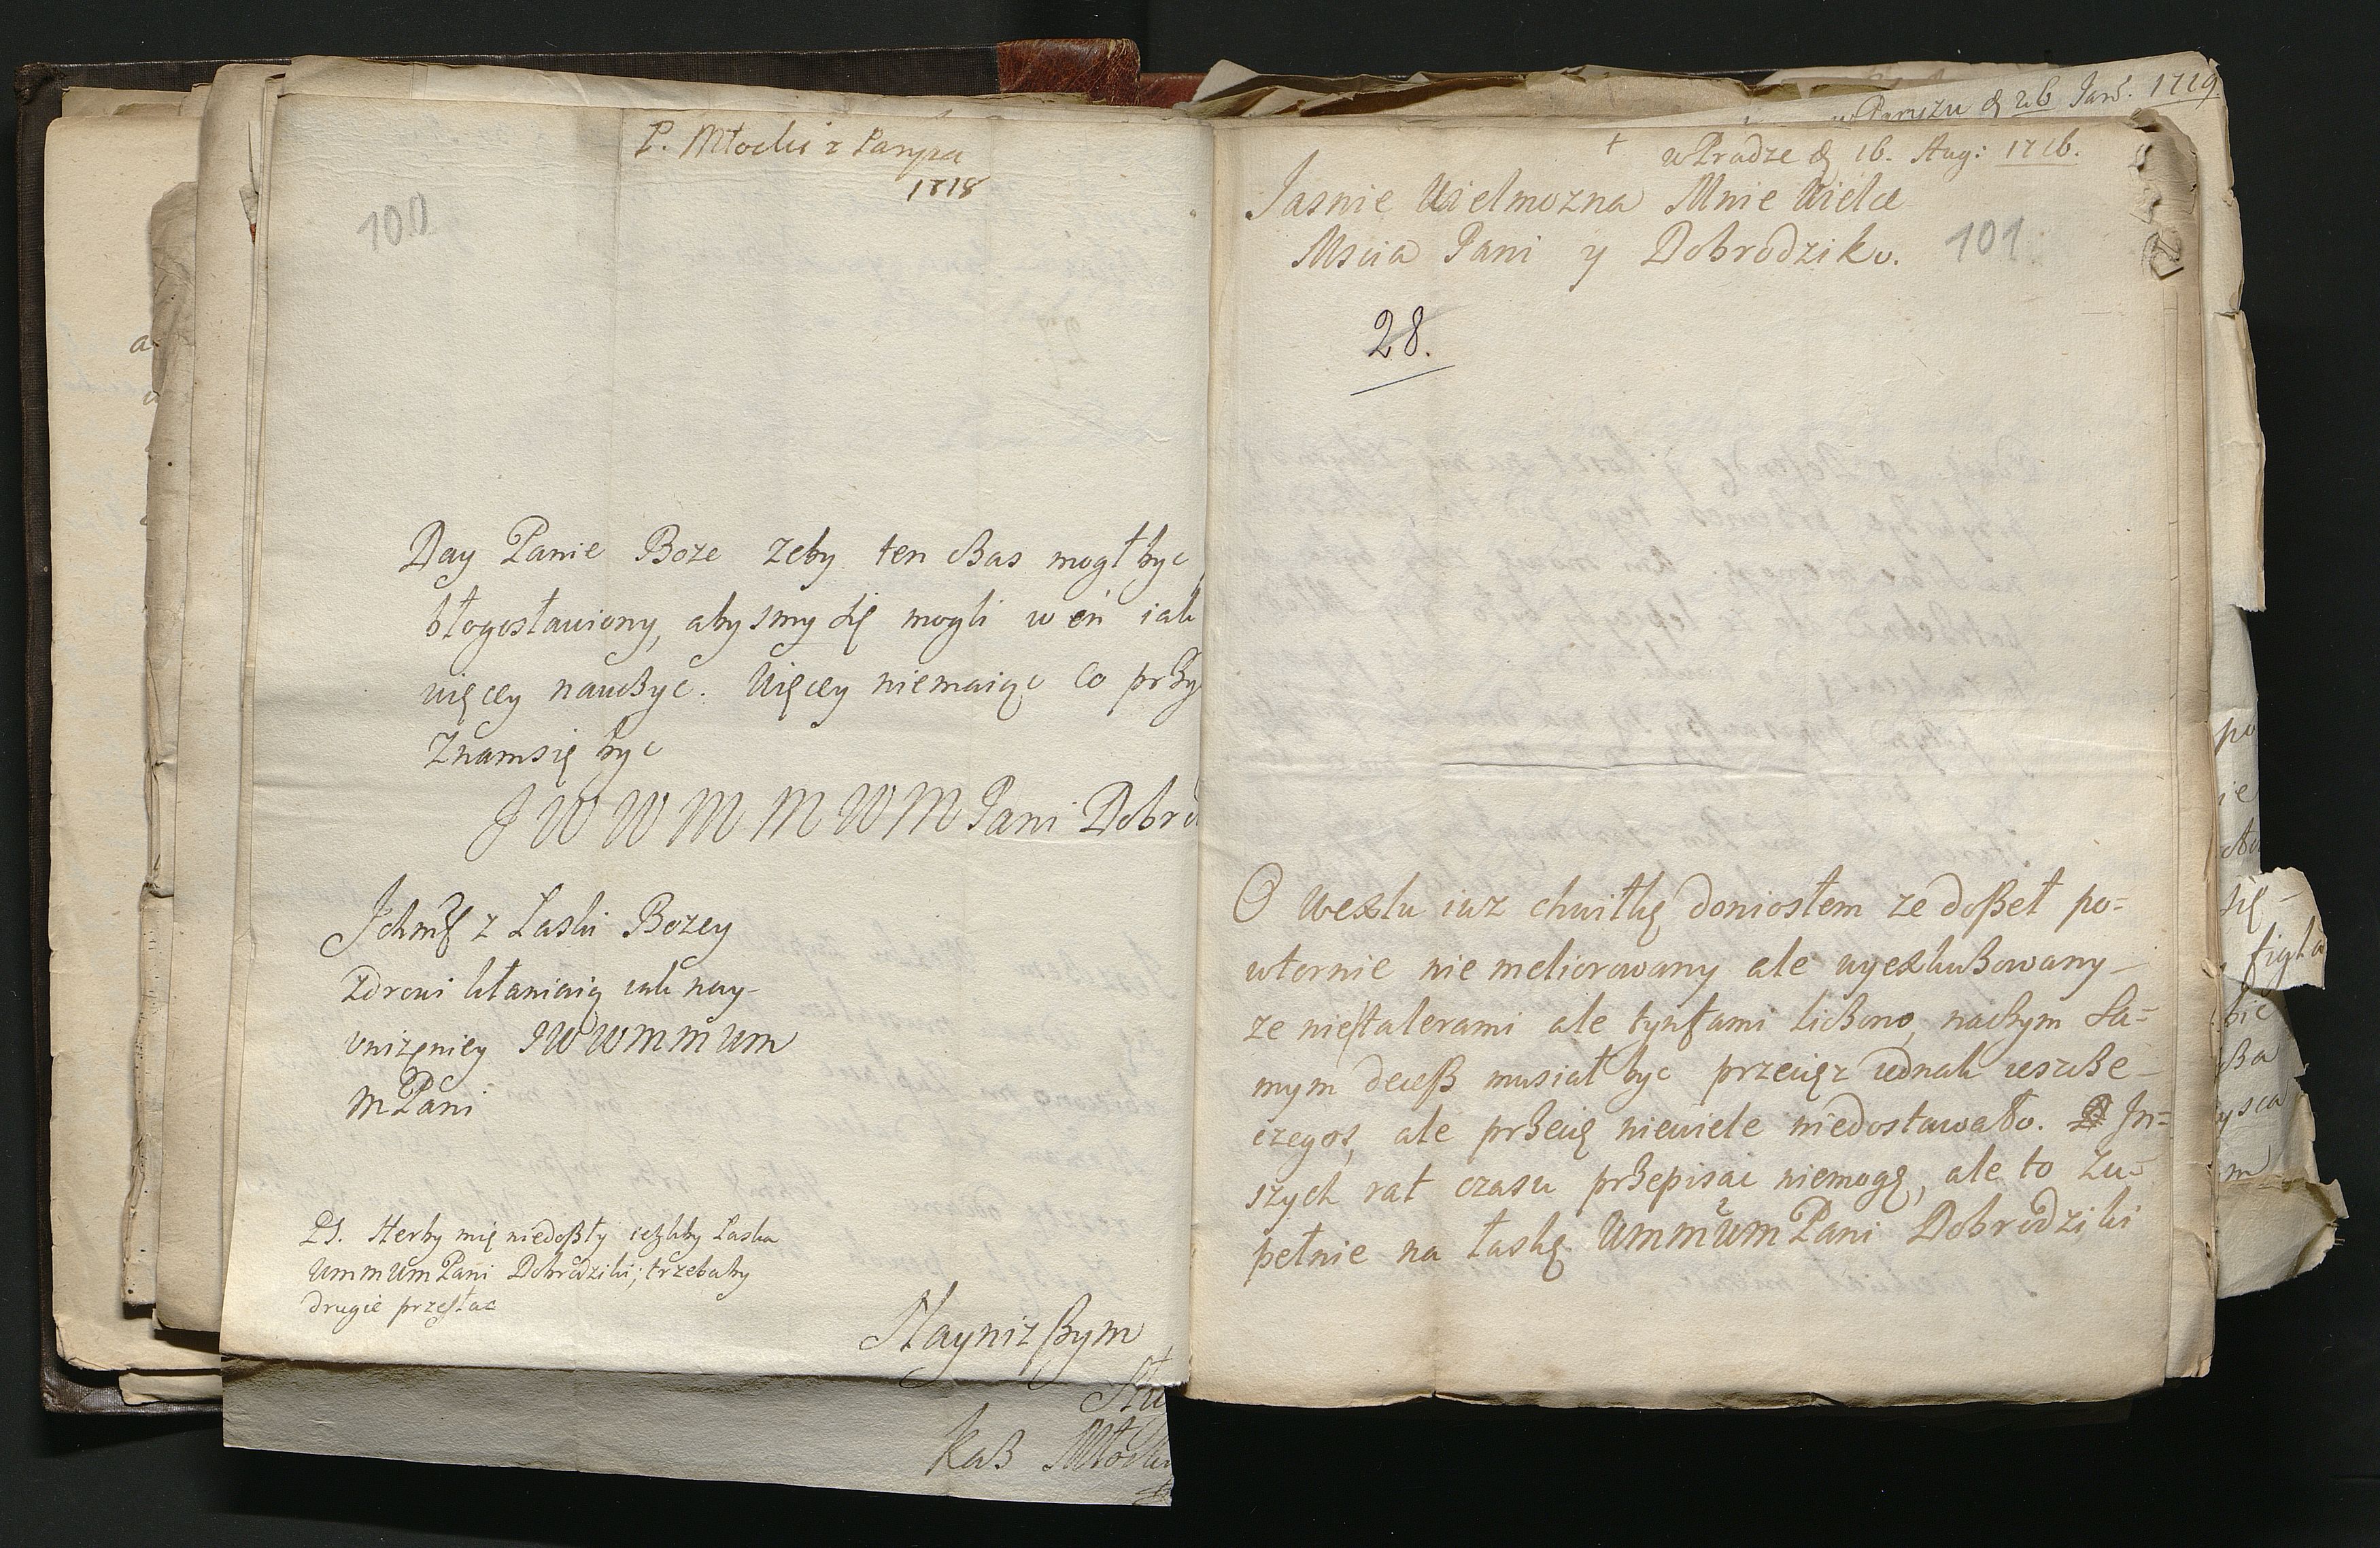 P. Młocki z Paryza
1718
100
Day Panie Boze zeby ten cßas mogł byc
błogosławiony, abysmy się mogli w en iak
więcey naucżyc. Więcey niemaiąc co przy
Znamsię byc
J W W M M W M Pani Dobro
Ichmć z Laski Bozey
zdrowi kłaniaią iak nay-
unizęniey J W W M M W M
M Pani
PS. Herby mię niedoßły ieżliby Laska
W M M W M Pani Dobrodziki; trzebaby
drugie przesłac
Nayniz ßym
Słu
Kaß Młocki
w Paryzu d 26 Jan. 1719
† w Pradze d 16. Aug: 1716.
Jasnie Wielmozna Mnie Wielce
Mscia Pani y Dobrodziko.
101.
28.
O wexlu iuz chwilkę doniosłem ze doßeł po=
wtornie nie meliorowany ale wyexkußowany
ze nie talerami ale tynfami licżono, nacżym sa=
mym deceß musiał byc przecięz iednak ieszcże
czegos, ale przecię niewiele niedostawało. In=
szych rat czasu przepisac niemogę, ale to zu=
pełnie na łaskę W M M W M Pani Dobrodziki